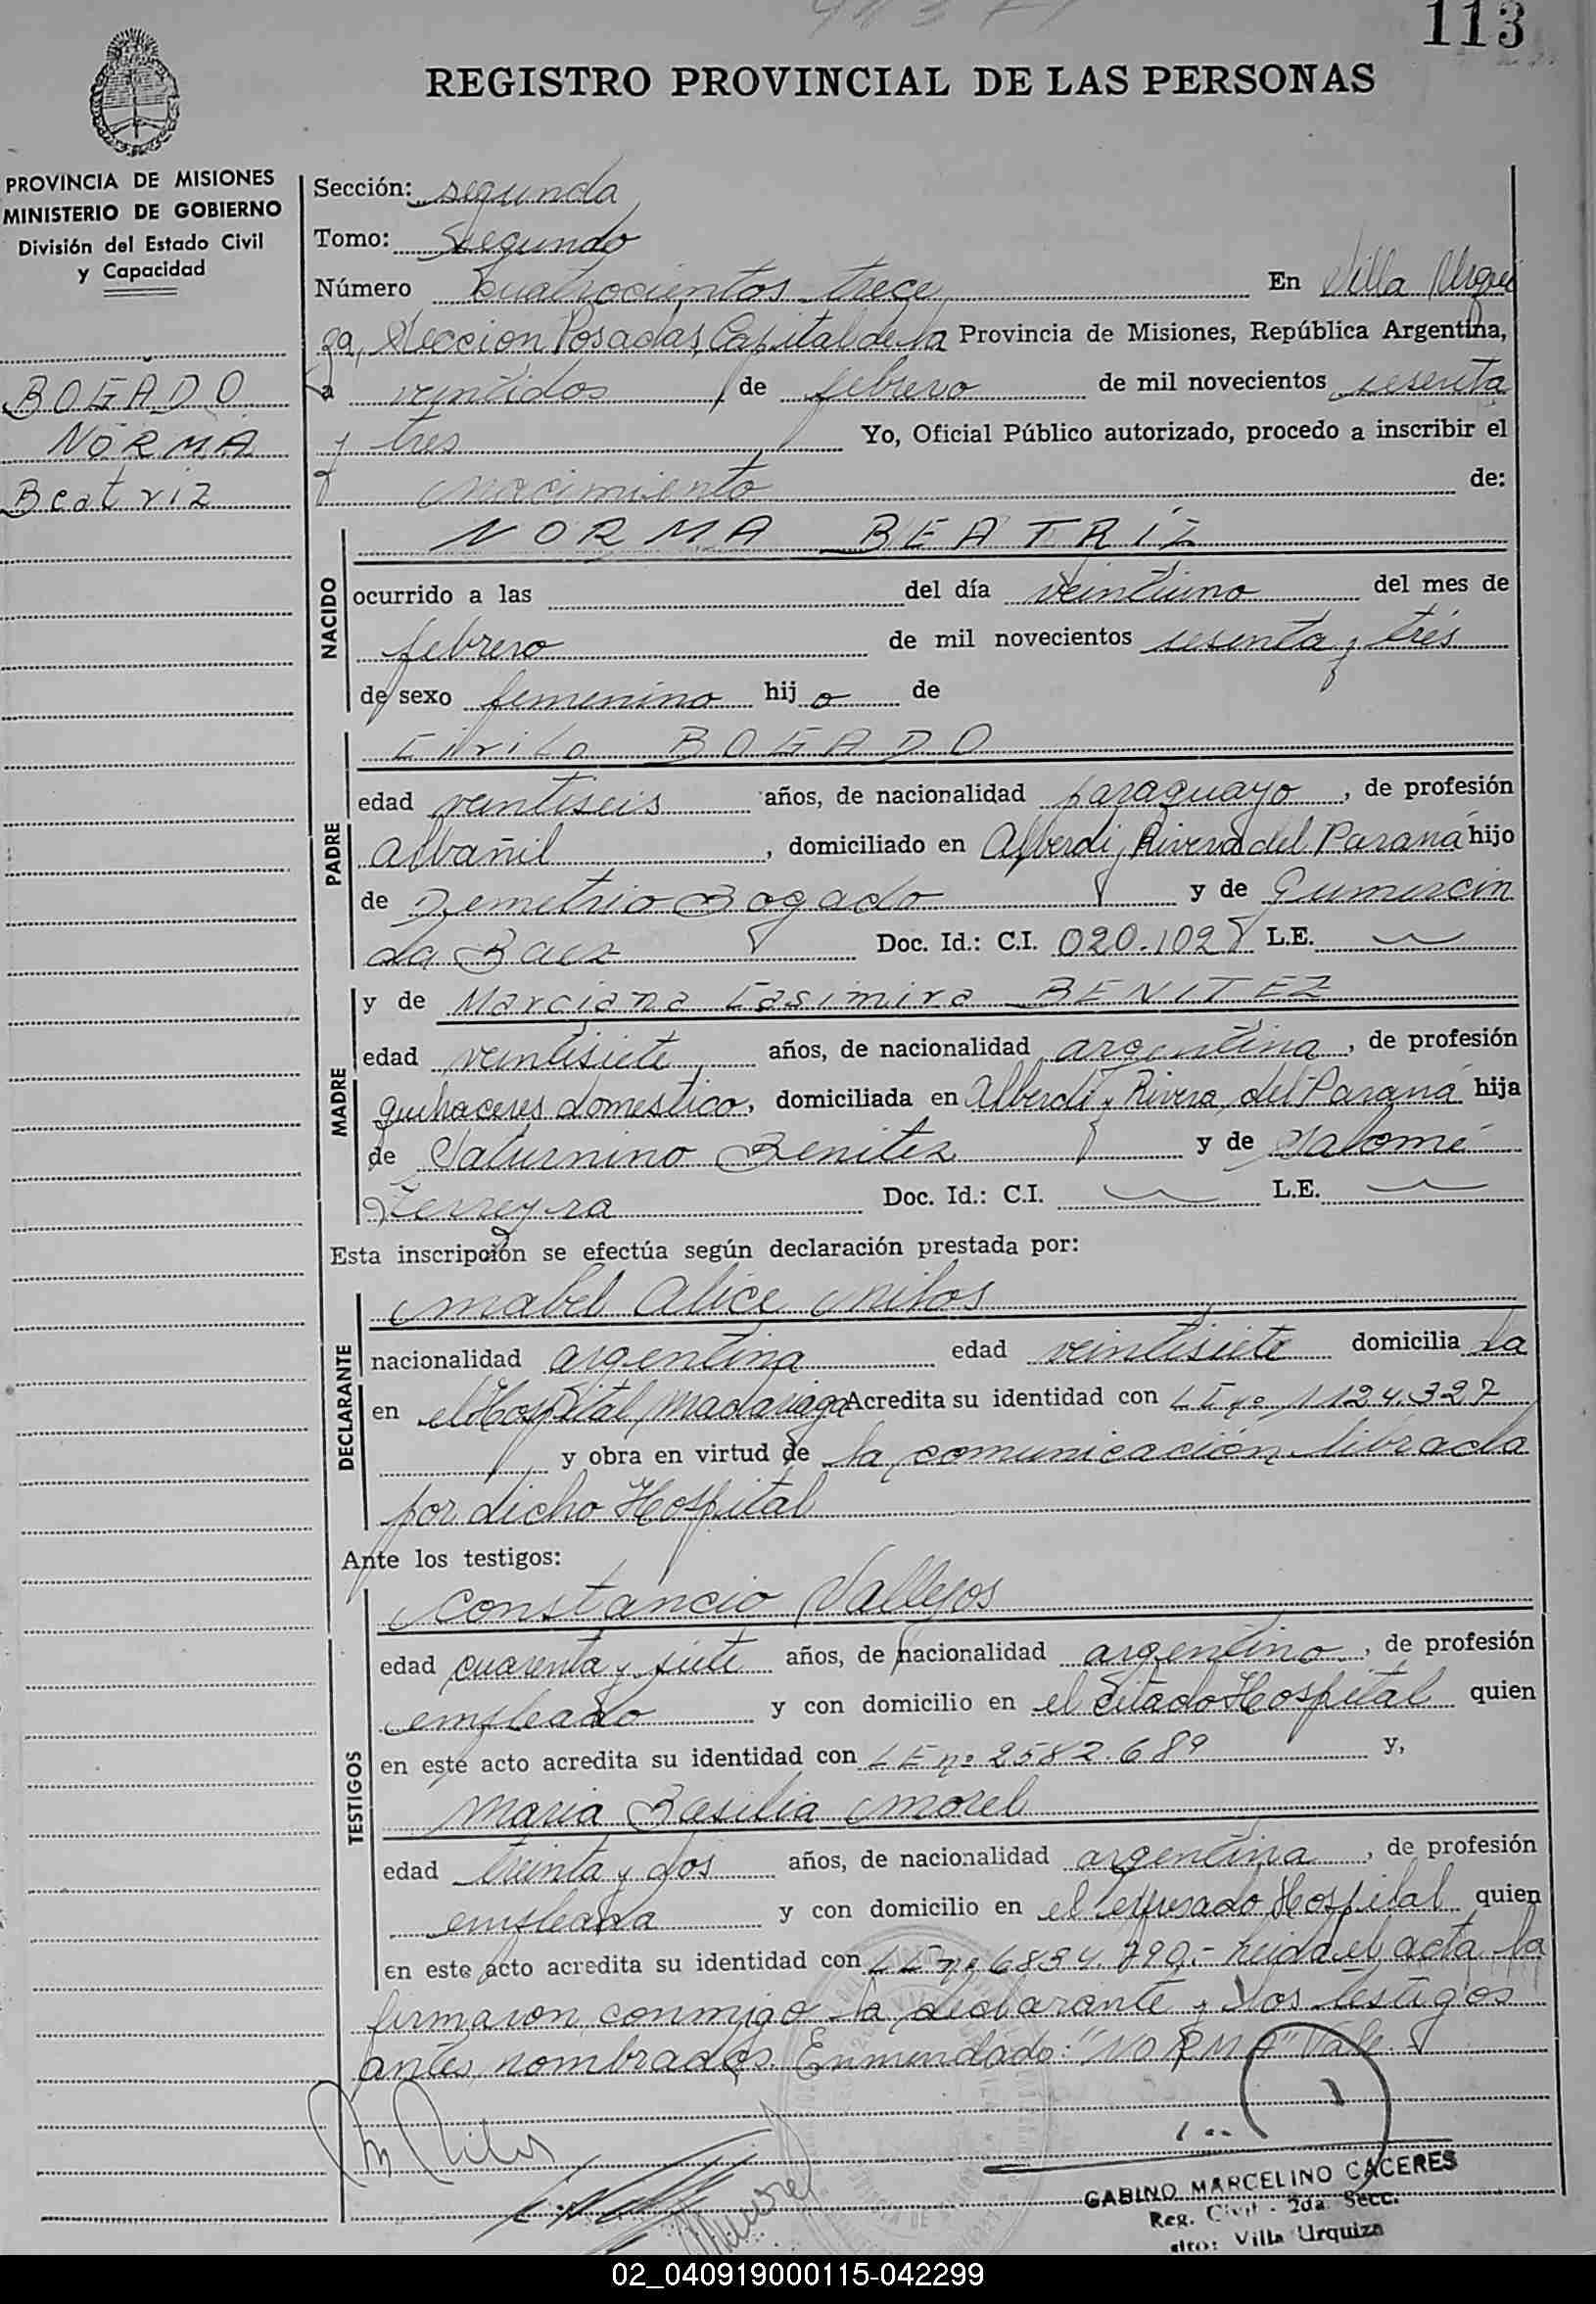 113
REGISTRO PROVINCIAL DE LAS PERSONAS
PROVINCIA DE MISIONES
MINISTERIO DE GOBIERNO
División del Estado Civil
y Capacidad
BOGADO
NORMA
Beatriz
Sección: segunda
Tomo: Segundo
Número Cuatrocientos trece En Villa Urqui
za, Seccion Posadas, Capital de la Provincia de Misiones, República Argentina,
a veintidos de febrero de mil novecientos sesenta
y tres Yo, Oficial Público autorizado, procedo a inscribir el
nacimiento de:
NACIDO
NORMA BEATRIZ
ocurrido a las del día veintiuno del mes de
febrero de mil novecientos sesenta y trés
de sexo femenino hijo de
PADRE
Cirilo BOGADO
edad veintiseis años, de nacionalidad paraguayo, de profesión
albañil, domiciliado en Alberdi y Rivera del Paraná hijo
de Demetrio Bogado y de Gumercin
da Baez Doc. Id.: C.I. 020.102 L.E.
MADRE
y de Marciana Casimira BENITEZ
edad veintisiete años, de nacionalidad argentina, de profesión
quehaceres domestico, domiciliada en Alberdi y Rivera del Paraná hija
de Saturnino Benitez y de Salomé
Ferreyra Doc. Id.: C.I. L.E.
Esta inscripción se efectúa según declaración prestada por:
DECLARANTE
Mabel Alice Milos
nacionalidad argentina edad veintisiete domicilia da
en el Hospital Madariaga Acredita su identidad con LC nº 1124.327
y obra en virtud de la comunicación librada
por dicho Hospital
Ante los testigos:
TESTIGOS
Constancio Vallejos
edad cuarenta y siete años, de nacionalidad argentino, de profesión
empleado y con domicilio en el citado Hospital quien
en este acto acredita su identidad con LE nº 2582.689 y,
Maria Basilia Morel
edad treinta y dos años, de nacionalidad argentina, de profesión
empleada y con domicilio en el expresado Hospital quien
en este acto acredita su identidad con LC nº 6834.790.- Leida el acta la
firmaron conmigo la declarante y los testigos
antes nombrados. Enmendado: "NORMA" Vale.
GABINO MARCELINO CACERES
Reg. Civil - 2da. Secc.
Villa Urquiza
02_040919000115-042299